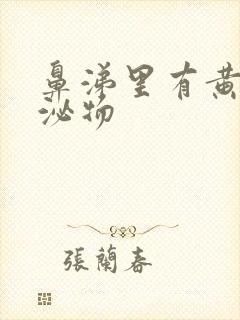 鼻涕里有黄
泌物
張蘭春